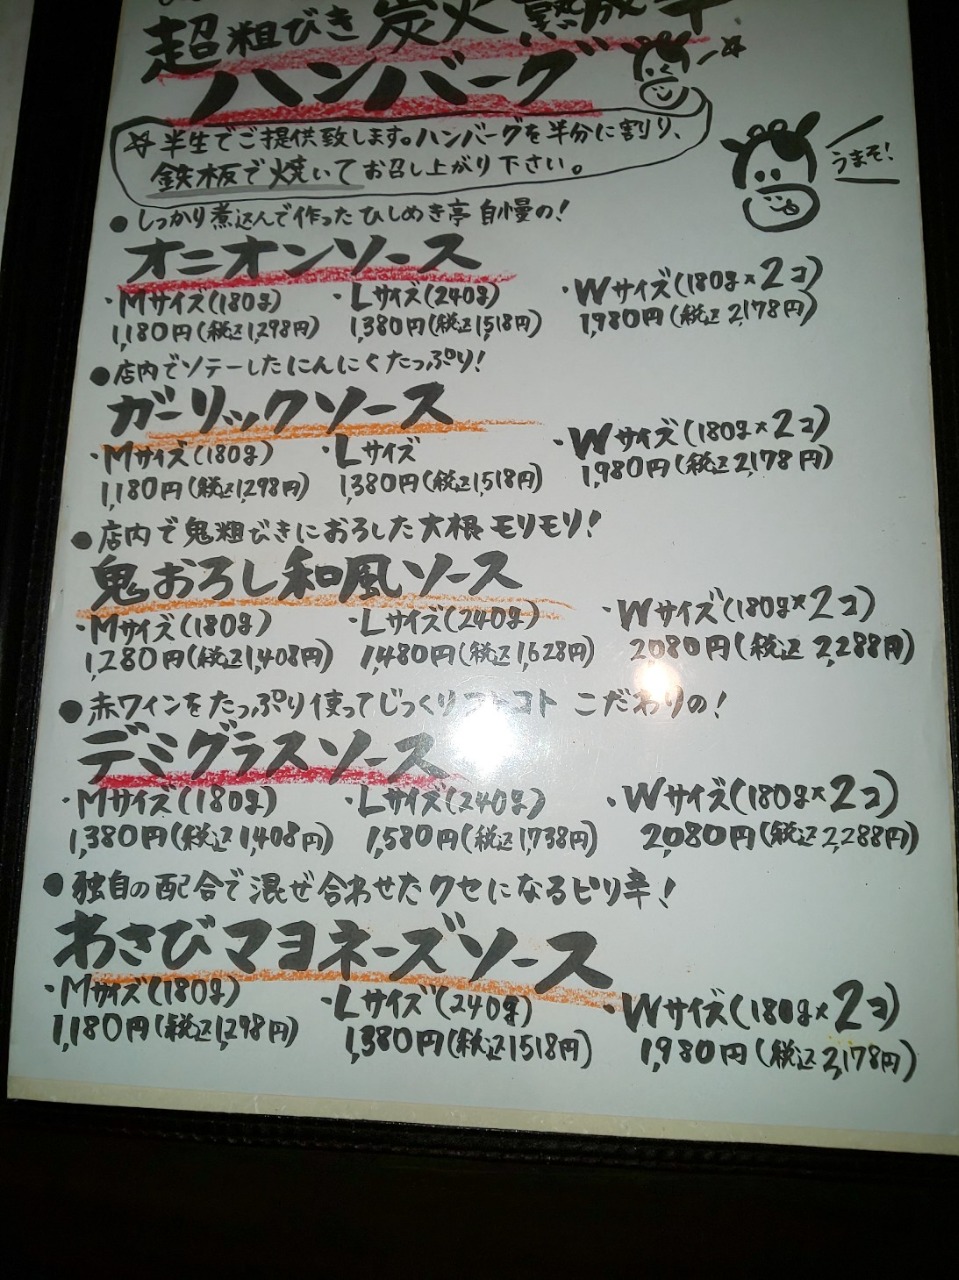 超粗びき炭火熟成牛
ハンバーグ
☆半生でご提供致します。ハンバーグを半分に割り、
鉄板で焼いてお召し上がり下さい。
うまそ!
●しっかり煮込んで作ったひしめき亭自慢の!
オニオンソース
・Mサイズ(180g) ・Lサイズ(240g) ・Wサイズ(180g×2コ)
1,180円(税込1,298円) 1,380円(税込1,518円) 1,980円(税込2,178円)
●店内でソテーしたにんにくたっぷり!
ガーリックソース
・Mサイズ(180g) ・Lサイズ ・Wサイズ(180g×2コ)
1,180円(税込1,298円) 1,380円(税込1,518円) 1,980円(税込2,178円)
●店内で鬼粗びきにおろした大根モリモリ!
鬼おろし和風ソース
・Mサイズ(180g) ・Lサイズ(240g) ・Wサイズ(180g×2コ)
1,280円(税込1,408円) 1,480円(税込1,628円) 2,080円(税込2,288円)
●赤ワインをたっぷり使ってじっくりコトコトこだわりの!
デミグラスソース
・Mサイズ(180g) ・Lサイズ(240g) ・Wサイズ(180g×2コ)
1,380円(税込1,408円) 1,580円(税込1,738円) 2,080円(税込2,288円)
●独自の配合で混ぜ合わせたクセになるピリ辛!
わさびマヨネーズソース
・Mサイズ(180g) ・Lサイズ(240g) ・Wサイズ(180g×2コ)
1,180円(税込1,298円) 1,380円(税込1518円) 1,980円(税込2,178円)